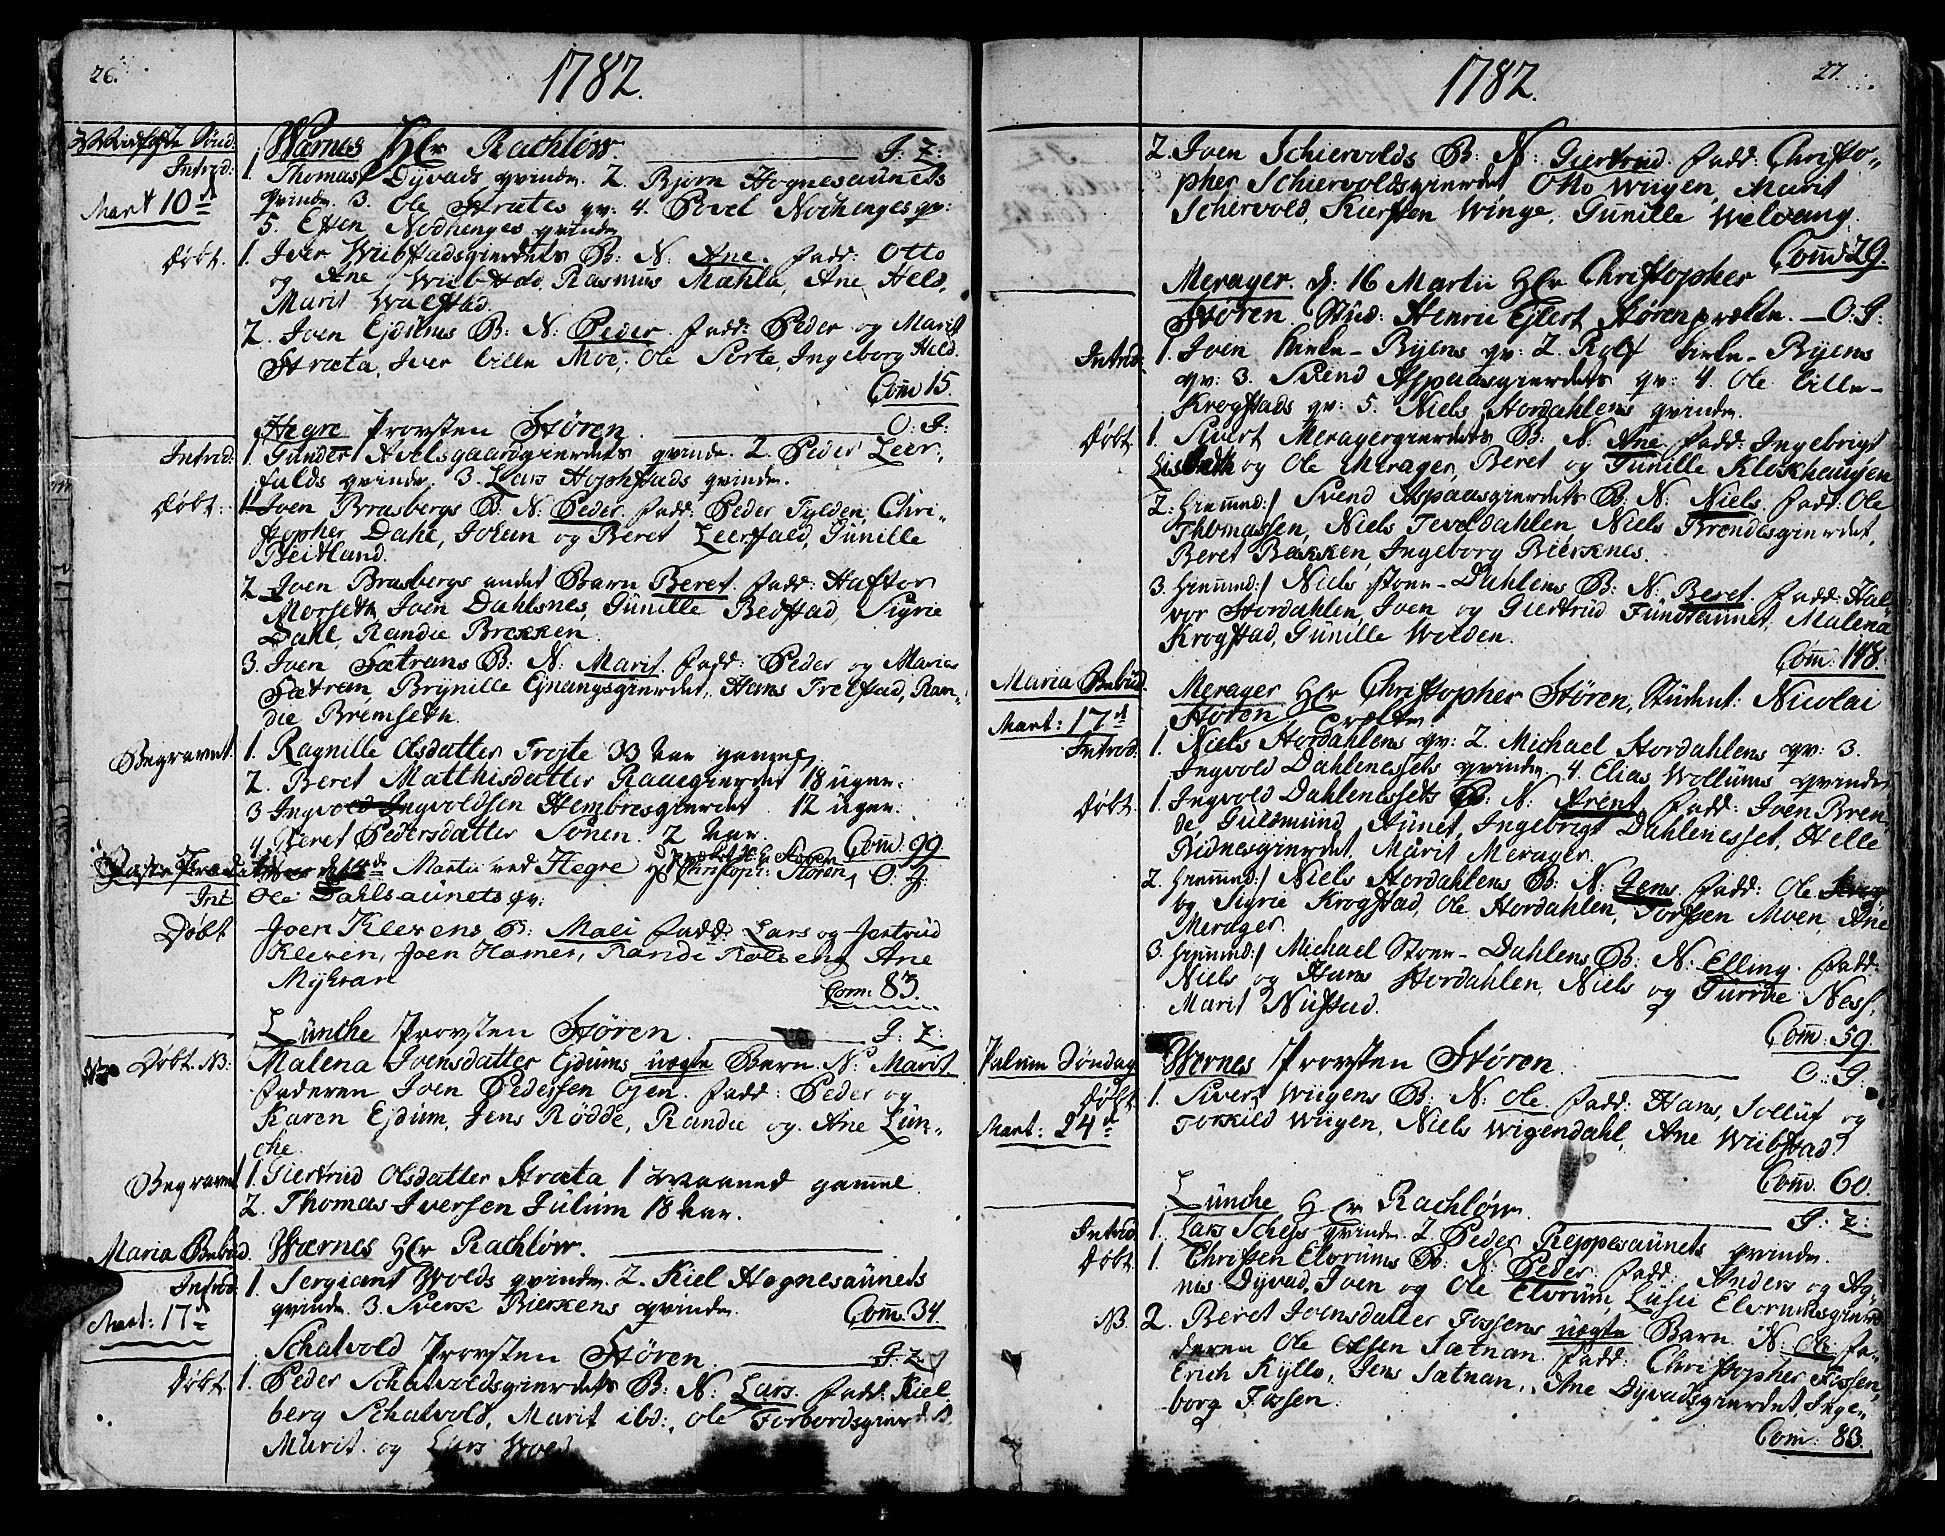 26.
1782.
Midfaste Sønd:
Værnes Hr Rachløw. J: Z:
Introd: 1. Thomas Dyvads qvinde. 2. Bjørn Hognesaunets
Mart 10d qvinde. 3. Ole Stratas qv: 4. Povel Nochenges qv:
5. Esten Nochenges qvinde
Døbt. 1. Iver Wiibstadsgierdets B: N: Ane. fadd: Otto
og Ane Wiibstad, Rasmus Mahla, Ane Held,
Marit Walstad.
2. Joen Ejdums B: N: Peder fadd: Peder og Marit
Strata, Iver Lille Moe, Ole Sorte, Ingeborg Held.
Com 15.
Hegre Provsten Støren. O: J:
Introd: 1. Gunder Avelsgaardgierdets qvinde. 2. Peder Leer-
falds qvinde. 3. Lars Hophstads qvinde.
Døbt: 1. Joen Brasbergs B: N: Peder. fadd: Peder Fylden, Chri-
stopher Dahl, Johan og Beret Leerfald, Gunille
Reitland.
2. Joen Brasbergs andet Barn Beret. fadd: Haftor
Morseth, Joen Dahlsnes, Gunille Bedstad, Sigrie
Dahl, Randie Brekken.
3. Joen Sætrans B: N: Marit. fadd: Peder og Marias
Sætran, Brynille Ejnangsgierdet, Hans Trelstad, Ran-
die Bremseth.
Begravet. 1. Ragnille Olsdatter Trøite 33 Aar gammel,
2. Beret Matthisdatter Raaegierdet 18 uger.
3 Ingvold Ingvoldsen Hembresgierdet 12 uger.
4. Beret Pedersdatter Sonen. 2 Aar. Com 99.
Martii ved Hegre Hr Christoph: Støren, O. J:
Int Ole Dahlsaunets qv:
Døbt Joen Klevens B: Mali fadd: Lars og Jertrud
Kleven, Joen Hamer, Randi Ane
Myhran
Com: 83.
Lunche Provsten Støren. J: Z:
Døbt. NB: Malena Joensdatter Ejdums uægte Barn N: Marit.
Faderen Joen Pedersen Øjen. fadd: Peder og
Karen Ejdum, Jens Rodde, Randie og Ane Lun-
che.
Begravet 1. Giertrud Olsdatter Strata 1 Maaned gammel.
2. Thomas Iversen Julum 18 Aar.
Maria Bebud. Værnes Hr Rachløw.
Introd 1. Sergiant Wolds qvinde. 2. Kiel Hognesaunets
qvinde. 3. Sverke Bierkens qvinde. Com. 34.
Mart: 17d
Schatvold Provsten Støren. J: Z:
Døbt. 1. Peder Schatvoldsgierdets B: N: Lars. fadd: Kiel
berg Schatvold, Marit ibd:, Ole Forbordsgierdet
Marit og Lars
1782.
27.
2. Joen Schiervolds B: N: Giertrud. fadd: Christo-
pher Schiervoldsgierdet Otto Wiigen, Marit
Schiervold, Kiersten Winge, Gunille Welvang.
Com 29.
Merager. d: 16 Martii Hr Christopher
Støren. Stud: Henric Ejlert Støren prækte. O: J:
Introd. 1. Joen Kirke-Byens qv: 2. Rolf Kirke-Byens
qv: 3. Svend Aspaasgierdets qv: 4. Ole Lille-
Krogstads qv: 5. Niels Stordahlens qvinde.
Døbt 1. Sivert Meragergierdets B: N: Ane. fadd: Ingebrigt
og Ole Merager, Beret og Gunille Kloxhaugen
2: Hiemmed:/ Svend Aspaasgierdets B: N: Niels. fadd: Ole
Thomassen, Niels Teveldahlen, Niels Brendesgierdet,
Beret Bækken, Ingeborg Bierknes.
3. Hiemmed:/ Niels Store-Dahlens B: N: Beret. fadd: Hal-
vor Stordahlen, Joen og Giertrud Fundtaunet, Malena
Krogstad, Gunille Wolden.
Com: 148.
Maria Bebud. Merager Hr Christopher Støren, Student: Nicolai
Mart: 17d Støren prækte.
Introd. 1. Niels Stordahlens qv: 2. Michael Stordahlens qv: 3.
Ingvold Dahlenessets qvinde. 4. Elias Wollums qvinde
Døbt. 1. Ingvold Dahlenessets B: N: Arent. fadd: Joen Bren-
de, Gulsmund Hunet, Ingebrigt Dahlenesset, Helle
Ridnesgierdet, Marit Merager.
2. Hiemmed:/ Niels Stordahlens B: N: Jens. fadd: Ole
og Sigrie Krogstad, Ole Stordahlen, Torsten Moen, Ane
Merager.
3. Hiemmed:/ Michael Store-Dahlens B: N: Elling. fadd:
Niels og Hans Stordahlen, Niels og Gurrie Ness,
Marit Nustad.
Com: 59.
Palme Søndag Værnes Provsten Støren. O: J:
Døbt. 1. Sivert Wiigens B: N: Ole. fadd: Hans, Solluf og
Mart: 24d Torkild Wiigen, Niels Wigendahl, Ane Wiibstad.
Com. 60.
Lunche Hr Rachløw. J: Z:
Introd 1. Lars Schejs qvinde. 2. Peder Reppesaunets qvinde.
Døbt 1. Christen Elvrums B: N: Peder fadd: Anders og Ag-
nes Dyvad, Joen og Ole Elvrum, Lusie Elvrumsgierd
NB. 2. Beret Joensdatter Fossens uægte Barn N: Ole, Fa-
deren Ole Olsen Satnan. fadd: Christopher Fossen,
Erich Kyllo, Jens Satnan, Ane Dyvadsgierdet, Inge-
borg Fossen.
Com: 83.